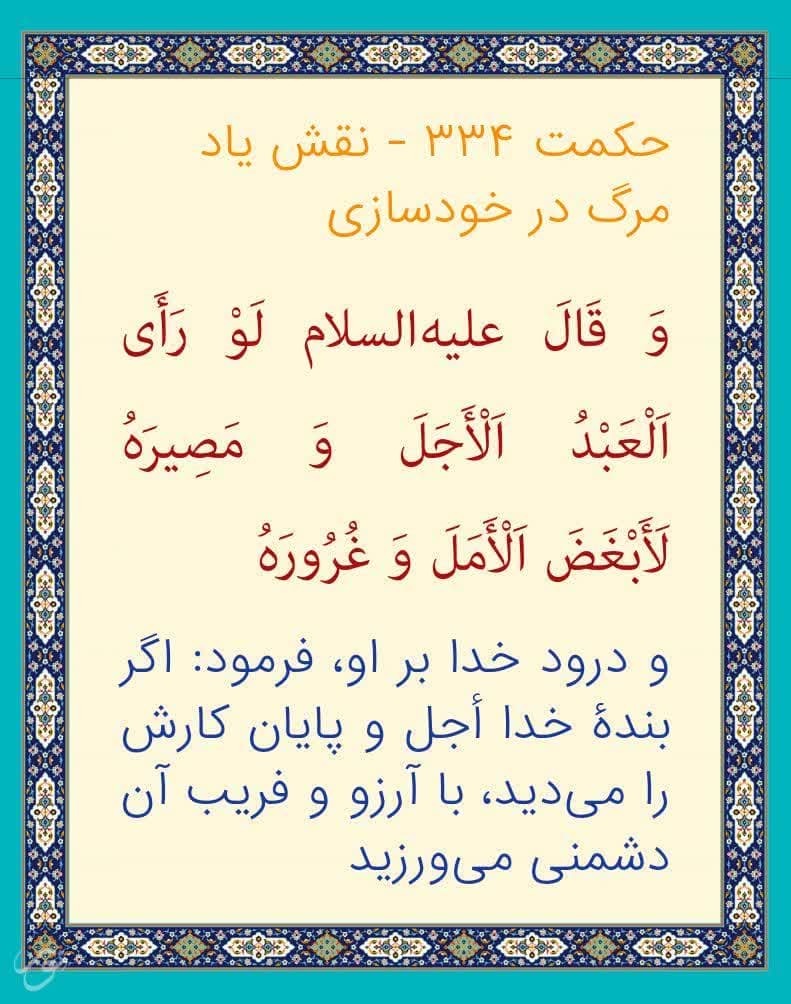 حکمت ۳۳۴ - نقش یاد
مرگ در خودسازی
وَ قَالَ علیه‌السلام لَوْ رَأَی
اَلْعَبْدُ اَلْأَجَلَ وَ مَصِیرَهُ
لَأَبْغَضَ اَلْأَمَلَ وَ غُرُورَهُ
و درود خدا بر او، فرمود: اگر
بندۀ خدا أجل و پایان کارش
را می‌دید، با آرزو و فریب آن
دشمنی می‌ورزید